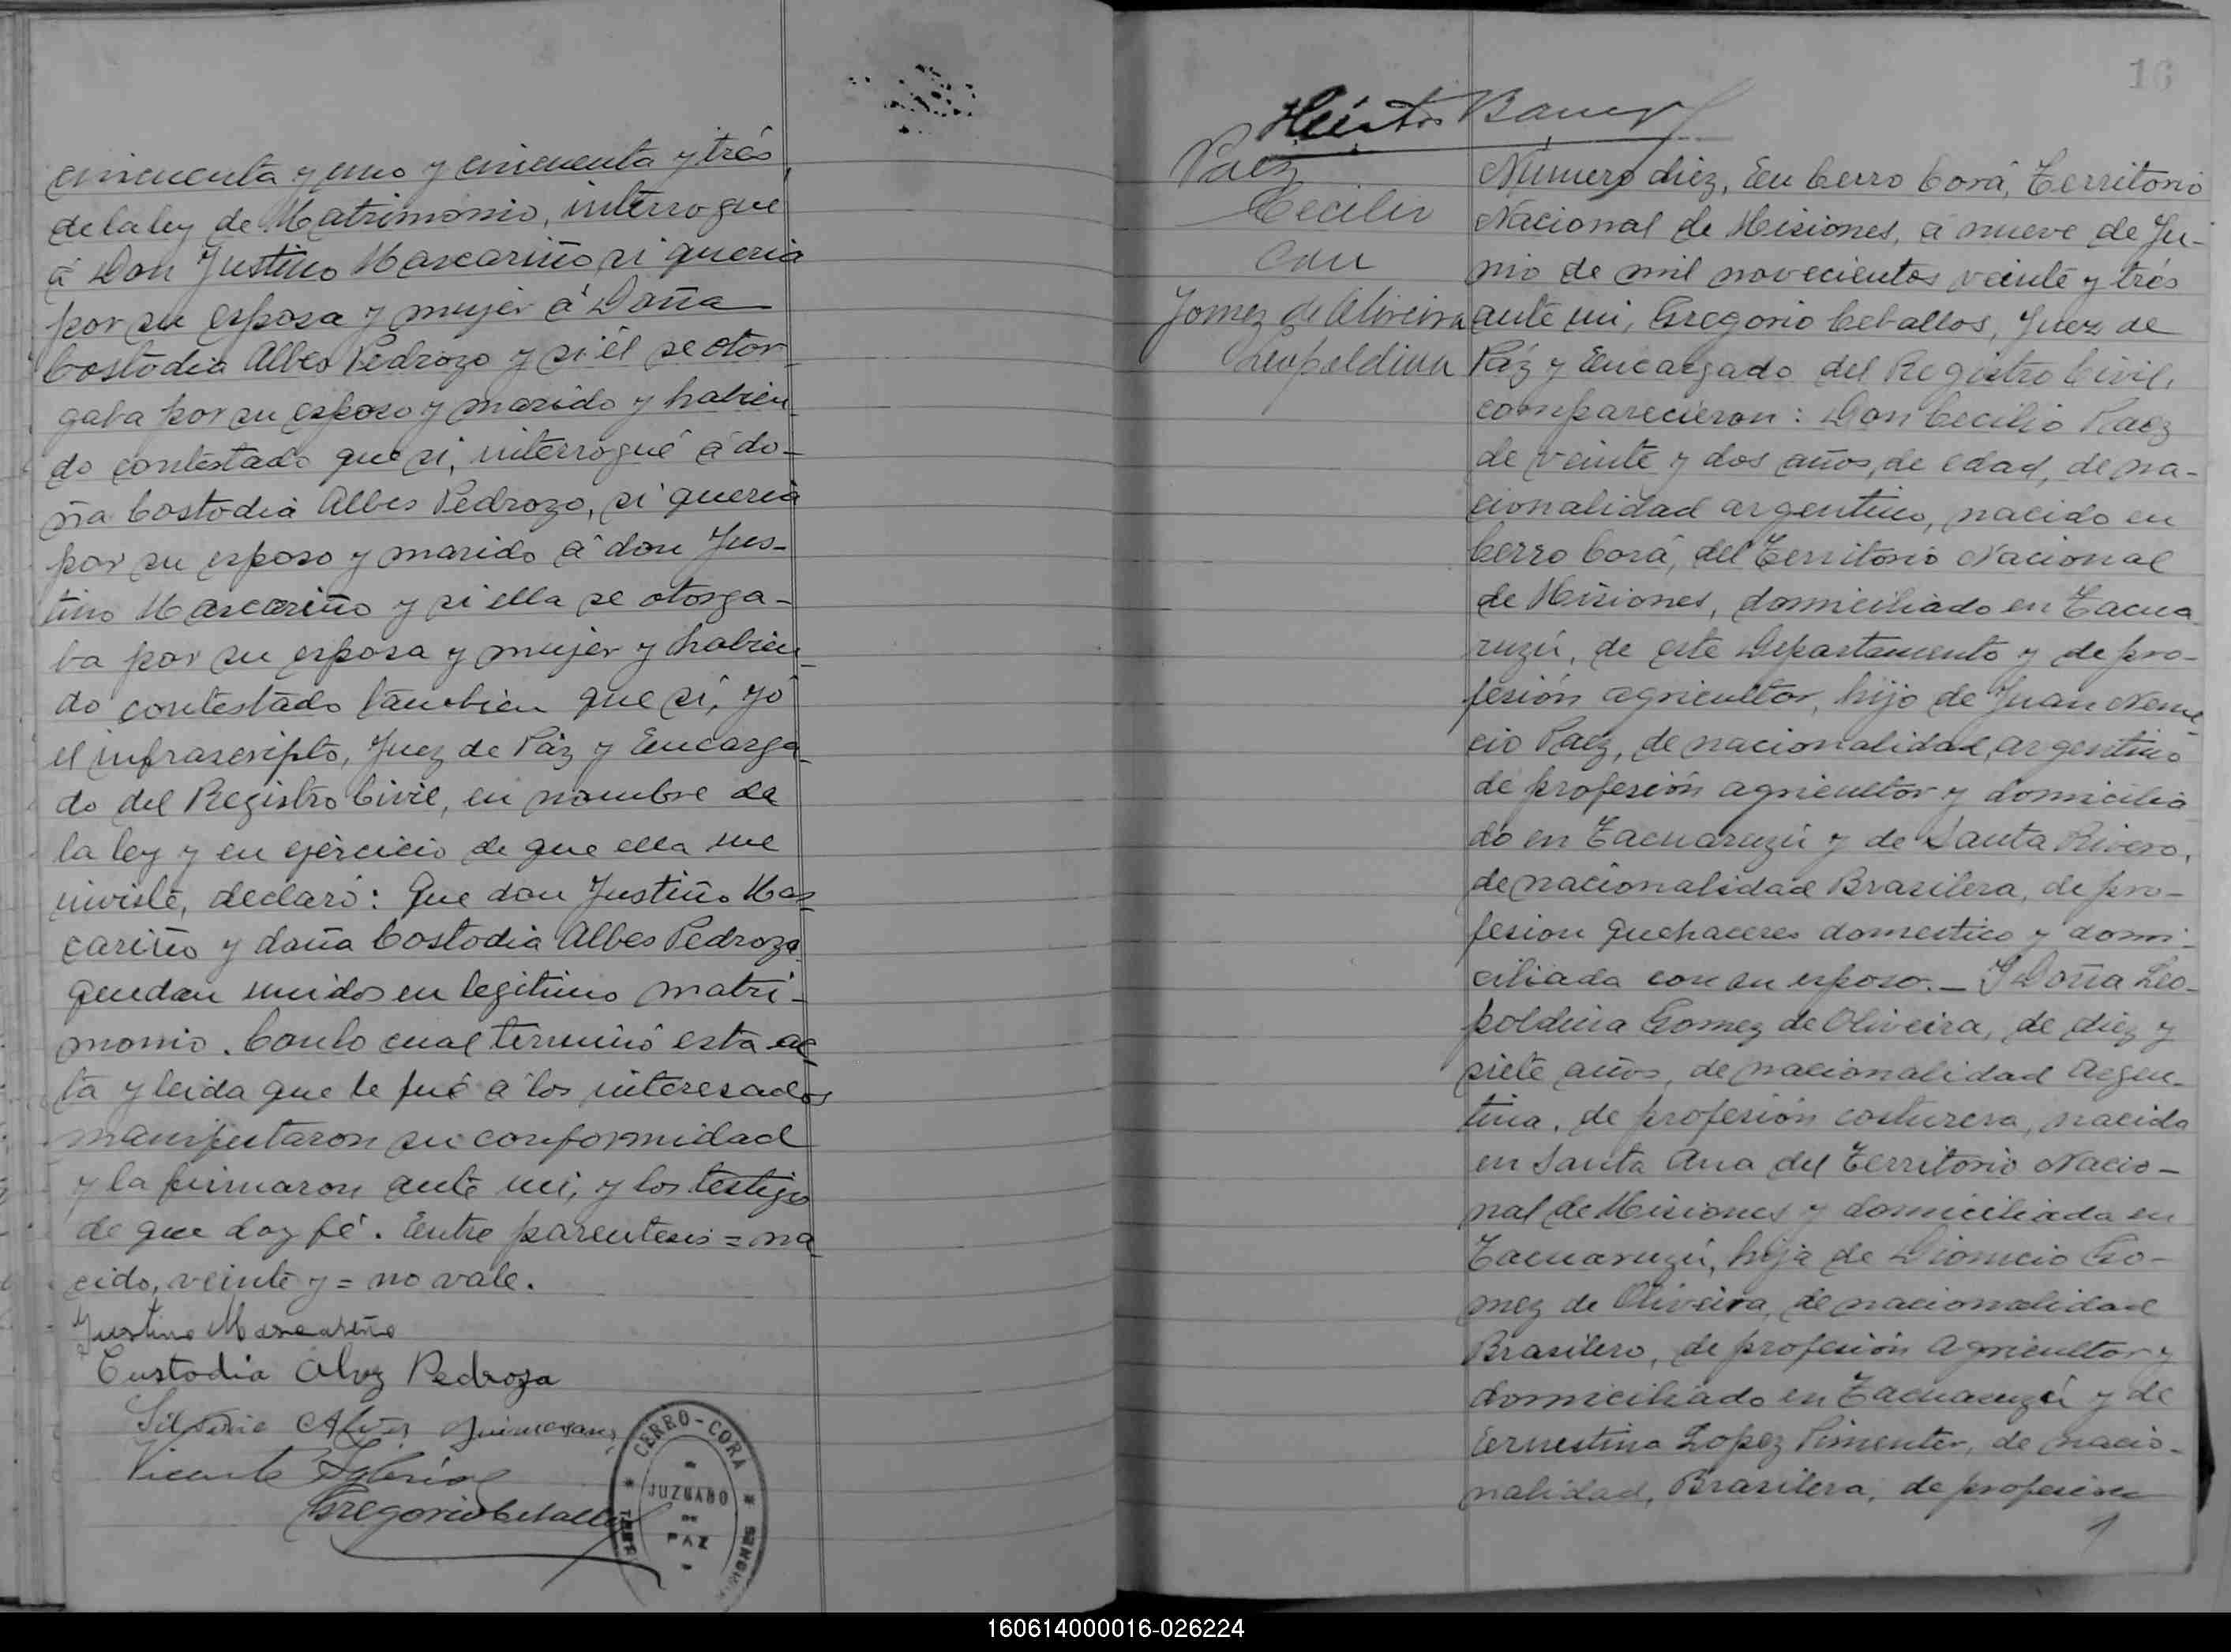 cincuenta y uno y cincuenta y trés,
de la ley de Matrimonio, interrogue
á Don Justino Mascariño si queria
por su esposa y mujer á Doña
Costodia Albes Pedrozo y si él se otor-
gaba por su esposo y marido y habien-
do contestado que si, interrogué á do-
ña Costodia Albes Pedrozo, si queria
por su esposo y marido á don Jus-
tino Mascariño y si ella se otorga-
ba por su esposa y mujer y habien-
do contestado tambien que si, yo
el infrascripto, Juez de Páz y Encarga-
do del Registro Civil, en nombre de
la ley y en ejercicio de que ella me
inviste, declaró: Que don Justiño Mas-
cariño y doña Costodia Albes Pedrozo
quedan unidos en legitimo matri-
monio. Con lo cual terminó esta ac-
ta y leida que le fué á los interesados
manifestaron su conformidad
y la firmaron ante mi, y los testigo
de que doy fé. Entre parentesis = na-
cido, veinte y = no vale.
Justino Mascareño
Custodia Alvez Pedroza
Silverio Alves
Vicente
Gregorio Ceballos
CERRO-CORA
JUZGADO
DE
PAZ
16
Paez
Cecilio
con
Gomez de Oliveira
Leopoldina
Número diez, En Cerro Corá, Territorio
Nacional de Misiones, á nueve de Ju-
nio de mil novecientos veinte y trés
ante mi, Gregorio Ceballos, Juez de
Páz y Encargado del Registro Civil,
comparecieron: Don Cecilio Paez
de veinte y dos años, de edad, de na-
cionalidad argentino, nacido en
Cerro Corá, del Territorio Nacional
de Misiones, domiciliado en Tacua
ruzú, de este Departamento y de pro-
fesión agricultor, hijo de Juan Neme
cio Paez, de nacionalidad, argentino
de profesión agricultor y domicilia
do en Tacuaruzú y de Santa Rivero,
de nacionalidad Brasilera, de pro-
fesion quehaceres domestico y domi-
ciliada con su esposo.— Y Doña Leo-
poldina Gomez de Oliveira, de diez y
siete años, de nacionalidad Argen-
tina, de profesión costurera, nacida
en Santa Ana del Territorio Nacio-
nal de Misiones y domiciliada en
Tacuaruzú, hija de Dionicio Go-
mez de Oliveira, de nacionalidad
Brasilero, de profesión agricultor y
domiciliado en Tacuaruzú y de
Ernestina Lopez Pimenter, de nacio-
nalidad, Brasilera, de profesion
160614000016-026224